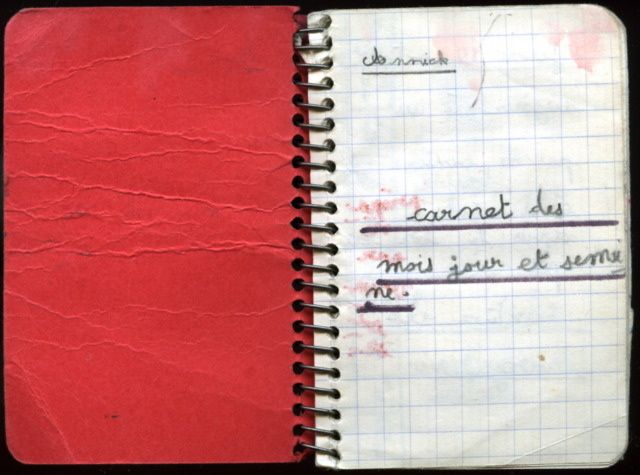 Annick
carnet des
mois jour et semai
ne.